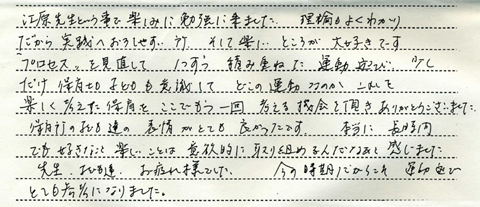 江原先生という事で楽しみに勉強に来ました。理論もよくわかり
だから実践へおろしやすい、そして楽しいところが大好きです
プロセスを見直して 1つずつ積み重ねた運動遊び 少し
だけ保育士も子どもも意識して どこの運動 なのか これを
楽しく考えた保育を ここでもう一回 考える機会を頂きありがとうございました。
保育所の子ども達の表情がとても良かったです。本当に長時間
でも好きなこと楽しいことは意欲的に取り組めるんだなあと感じました
先生、子ども達、お疲れ様でした。今の時期だからこそ 運動遊び
とても参考になりました。